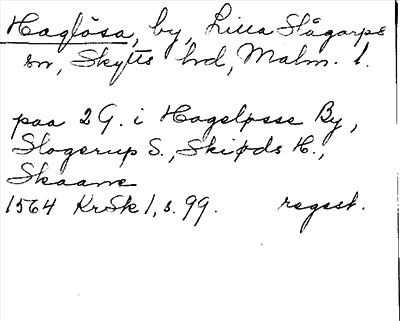 Haglösa, by, Lilla Slågarps
sn, Skytts hd, Malm. l.
paa 2 G. i Hagelpsse By,
Slogerup S., Skipds H.,
Skaane
1564 KrSk 1, s. 99. regest.